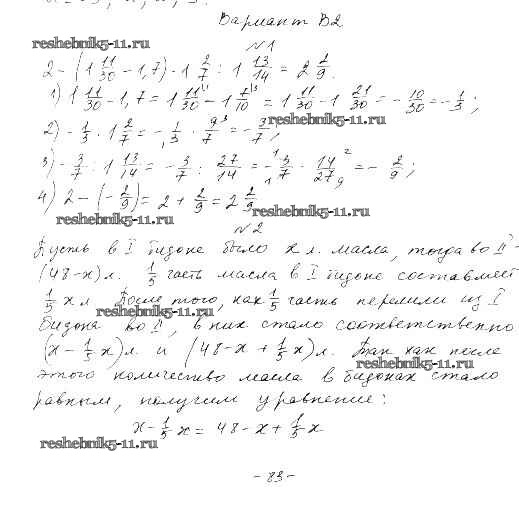 Вариант В2
reshebnik5-11.ru
№1
2 - (1 11/30 - 1,7) · 1 2/7 : 1 13/14 = 2 2/9.
1) 1 11/30 - 1,7 = 1 11/30 - 1 7/10 = 1 11/30 - 1 21/30 = - 10/30 = - 1/3;
reshebnik5-11.ru
2) - 1/3 · 1 2/7 = - 1/3 · 9/7 = - 3/7;
3) - 3/7 : 1 13/14 = - 3/7 : 27/14 = - 3/7 · 14/27 = - 2/9;
4) 2 - (- 2/9) = 2 + 2/9 = 2 2/9
reshebnik5-11.ru
reshebnik5-11.ru
№2
Пусть в I бидоне было х л. масла, тогда во II -
(48-х) л. 1/5 часть масла в I бидоне составляет
1/5 х л. После того, как 1/5 часть перелили из I
reshebnik5-11.ru
бидона во II, в них стало соответственно
(х - 1/5 х) л. и (48 - х + 1/5 х) л. Так как после
reshebnik5-11.ru
этого количество масла в бидонах стало
равным, получим уравнение:
х - 1/5 х = 48 - х + 1/5 х
reshebnik5-11.ru
- 83 -